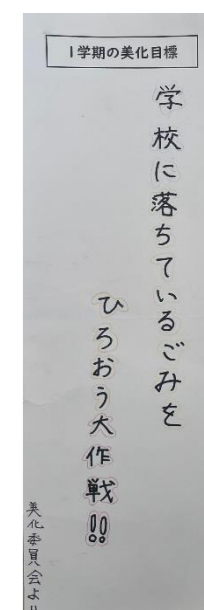 1学期の美化目標
学校に落ちているごみを
ひろおう大作戦!!
美化委員会より